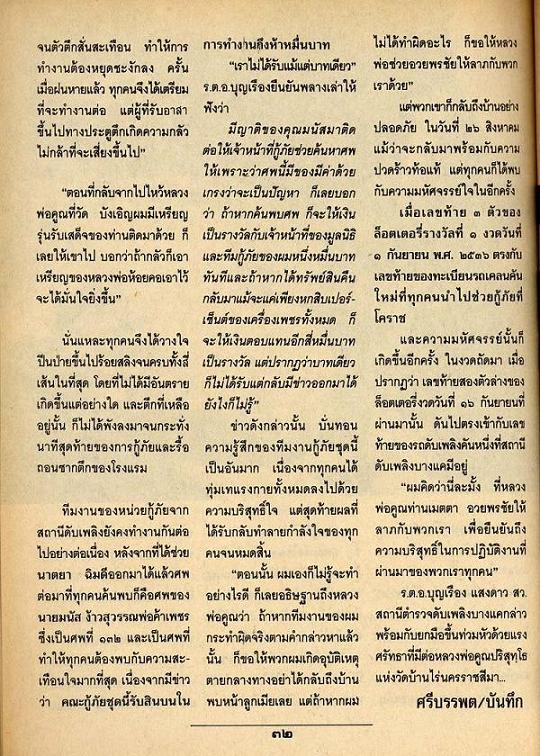 จนตัวตึกสั่นสะเทือน ทำให้การ
ทำงานต้องหยุดชะงักลง ครั้น
เมื่อฝนหายแล้ว ทุกคนจึงได้เตรียม
ที่จะทำงานต่อ แต่ผู้ที่รับอาสา
ขึ้นไปทางประตูตึกเกิดความกลัว
ไม่กล้าที่จะเสี่ยงขึ้นไป”
“ตอนที่กลับจากไปไหว้หลวง
พ่อคูณที่วัด บังเอิญผมมีเหรียญ
รุ่นรับเสด็จของท่านติดมาด้วย ก็
เลยให้เขาไป บอกว่าถ้ากลัวก็เอา
เหรียญของหลวงพ่อห้อยคอเอาไว้
จะได้มั่นใจยิ่งขึ้น”
นั่นแหละทุกคนจึงได้วางใจ
ปีนป่ายขึ้นไปร้อยสลิงจนครบทั้งสี่
เส้นในที่สุด โดยที่ไม่ได้มีอันตราย
เกิดขึ้นแต่อย่างใด และตึกที่เหลือ
อยู่นั้น ก็ไม่ได้พังลงมาจนกระทั่ง
นาทีสุดท้ายของการกู้ภัยและรื้อ
ถอนซากตึกของโรงแรม
ทีมงานของหน่วยกู้ภัยจาก
สถานีดับเพลิงยังคงทำงานกันต่อ
ไปอย่างต่อเนื่อง หลังจากที่ได้ช่วย
นาตยา ฉิมดีออกมาได้แล้วศพ
ต่อมาที่ทุกคนค้นพบก็คือศพของ
นายมนัส ง้าวสุวรรณพ่อค้าเพชร
ซึ่งเป็นศพที่ ๑๓๒ และเป็นศพที่
ทำให้ทุกคนต้องพบกับความสะ-
เทือนใจมากที่สุด เนื่องจากมีข่าว
ว่า คณะกู้ภัยชุดนี้รับสินบนใน
การทำงานถึงห้าหมื่นบาท
“เราไม่ได้รับแม้แต่บาทเดียว”
ร.ต.อ.บุญเรืองยืนยันพลางเล่าให้
ฟังว่า
มีญาติของคุณมนัสมาติด
ต่อให้เจ้าหน้าที่กู้ภัยช่วยค้นหาศพ
ให้เพราะว่าศพนี้มีของมีค่าด้วย
เกรงว่าจะเป็นปัญหา ก็เลยบอก
ว่า ถ้าหากค้นพบศพ ก็จะให้เงิน
เป็นรางวัลกับเจ้าหน้าที่ของมูลนิธิ
และทีมกู้ภัยของผมหนึ่งหมื่นบาท
ทันทีและถ้าหากได้ทรัพย์สินคืน
กลับมาแม้จะแค่เพียงหกสิบเปอร์-
เซ็นต์ของเครื่องเพชรทั้งหมด ก็
จะให้เงินตอบแทนอีกสี่หมื่นบาท
เป็นรางวัล แต่ปรากฏว่าบาทเดียว
ก็ไม่ได้รับแต่กลับมีข่าวออกมาได้
ยังไงก็ไม่รู้”
ข่าวดังกล่าวนั้น บั่นทอน
ความรู้สึกของทีมงานกู้ภัยชุดนี้
เป็นอันมาก เนื่องจากทุกคนได้
ทุ่มเทแรงกายทั้งหมดลงไปด้วย
ความบริสุทธิ์ใจ แต่สุดท้ายผลที่
ได้รับกลับทำลายกำลังใจของทุก
คนจนหมดสิ้น
“ตอนนั้น ผมเองก็ไม่รู้จะทำ
อย่างไรดี ก็เลยอธิษฐานถึงหลวง
พ่อคูณว่า ถ้าหากทีมงานของผม
กระทำผิดจริงตามคำกล่าวหาแล้ว
นั้น ก็ขอให้พวกผมเกิดอุบัติเหตุ
ตายกลางทางอย่าได้กลับถึงบ้าน
พบหน้าลูกเมียเลย แต่ถ้าหากผม
ไม่ได้ทำผิดอะไร ก็ขอให้หลวง
พ่อช่วยอวยพรชัยให้ลาภกับพวก
เราด้วย”
แต่พวกเขาก็กลับถึงบ้านอย่าง
ปลอดภัย ในวันที่ ๒๖ สิงหาคม
แม้ว่าจะกลับมาพร้อมกับความ
ปวดร้าวท้อแท้ แต่ทุกคนก็ได้พบ
กับความมหัศจรรย์ใจในอีกครั้ง
เมื่อเลขท้าย ๓ ตัวของ
ล็อตเตอรี่รางวัลที่ ๑ งวดวันที่
๑ กันยายน พ.ศ. ๒๕๓๖ ตรงกับ
เลขท้ายของทะเบียนรถเครนคัน
ใหม่ที่ทุกคนนำไปช่วยกู้ภัยที่
โคราช
และความมหัศจรรย์นั้นก็
เกิดขึ้นอีกครั้ง ในงวดถัดมา เมื่อ
ปรากฏว่า เลขท้ายสองตัวล่างของ
ล็อตเตอรี่งวดวันที่ ๑๖ กันยายนที่
ผ่านมานั้น ดันไปตรงเข้ากับเลข
ท้ายของรถดับเพลิงคันหนึ่งที่สถานี
ดับเพลิงบางแคมีอยู่
“ผมคิดว่านี่ละมั้ง ที่หลวง
พ่อคูณท่านเมตตา อวยพรชัยให้
ลาภกับพวกเรา เพื่อยืนยันถึง
ความบริสุทธิ์ในการปฏิบัติงานที่
ผ่านมาของพวกเราทุกคน”
ร.ต.อ.บุญเรือง แสงดาว สว.
สถานีตำรวจดับเพลิงบางแคกล่าว
พร้อมกับยกมือขึ้นท่วมหัวด้วยแรง
ศรัทธาที่มีต่อหลวงพ่อคูณปริสุทฺโธ
แห่งวัดบ้านไร่นครราชสีมา...
ศรีบรรพต/บันทึก
๓๒